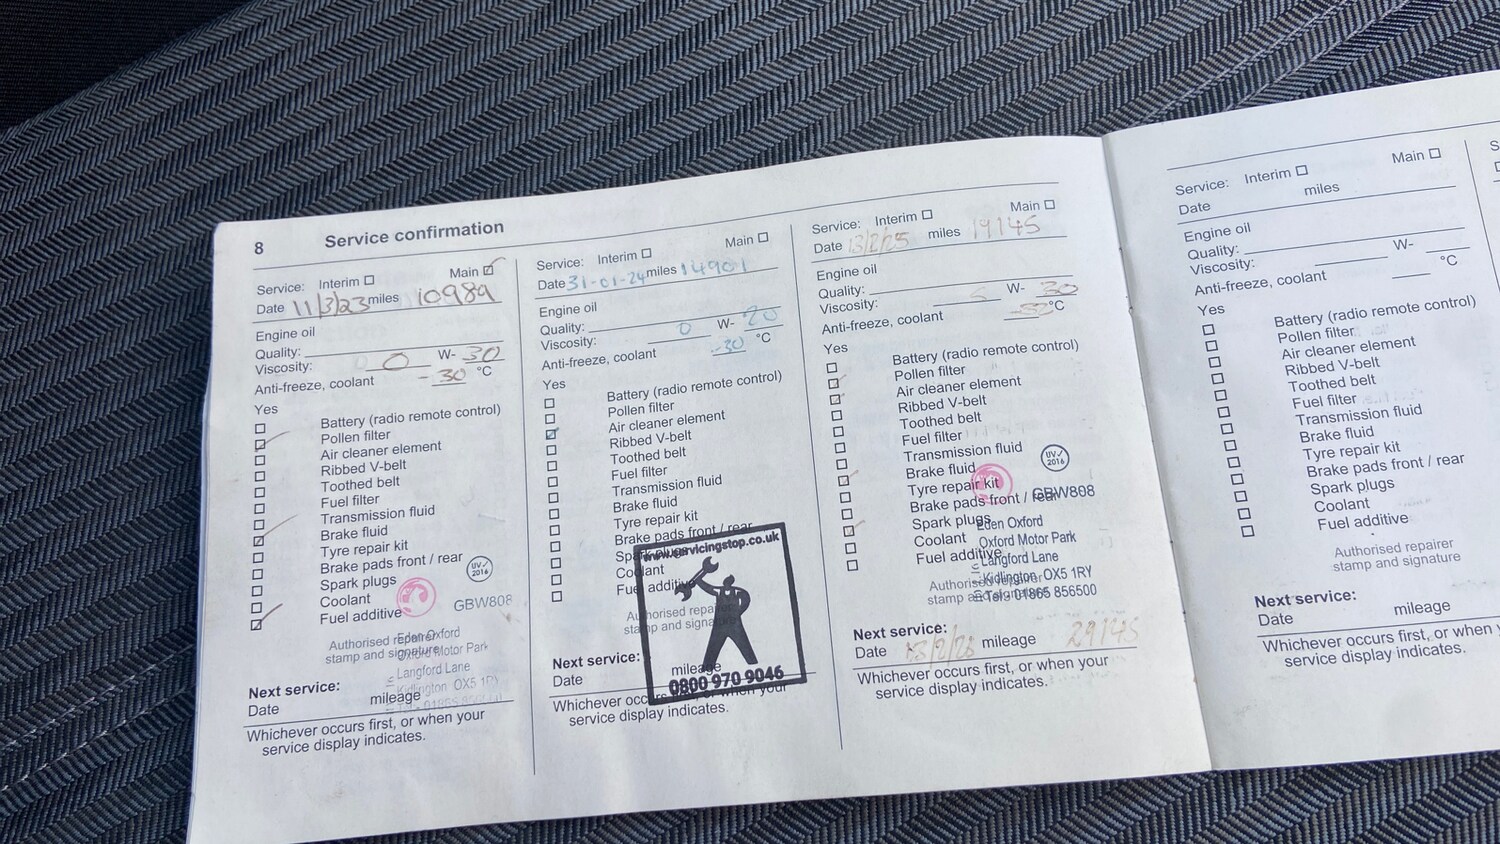 8 Service confirmation
Service: Interim ☐ Main ☑
Date 11/3/23 miles 10989
Engine oil
Quality:
Viscosity: 0 W- 30
Anti-freeze, coolant -30 °C
Yes
☐ Battery (radio remote control)
☑ Pollen filter
☐ Air cleaner element
☐ Ribbed V-belt
☐ Toothed belt
☐ Fuel filter
☐ Transmission fluid
☑ Brake fluid
☐ Tyre repair kit
☐ Brake pads front / rear
☐ Spark plugs
☐ Coolant
☑ Fuel additive
UV✓ 2016
GBW808
Authorised repairer
stamp and signature
Eden Oxford
Oxford Motor Park
Langford Lane
Kidlington OX5 1RY
Next service:
Date mileage
Whichever occurs first, or when your
service display indicates.
Service: Interim ☐ Main ☐
Date 31-01-24 miles 14901
Engine oil
Quality:
Viscosity: 0 W- 20
Anti-freeze, coolant -30 °C
Yes
☐ Battery (radio remote control)
☐ Pollen filter
☑ Air cleaner element
☐ Ribbed V-belt
☐ Toothed belt
☐ Fuel filter
☐ Transmission fluid
☐ Brake fluid
☐ Tyre repair kit
☐ Brake pads front / rear
☐ Spark plugs
☐ Coolant
☐ Fuel additive
www.servicingstop.co.uk
0800 970 9046
Authorised repairer
stamp and signature
Next service:
Date mileage
Whichever occurs first, or when your
service display indicates.
Service: Interim ☐ Main ☐
Date 13/2/25 miles 19145
Engine oil
Quality:
Viscosity: W- 30
Anti-freeze, coolant °C
Yes
☐ Battery (radio remote control)
☑ Pollen filter
☑ Air cleaner element
☐ Ribbed V-belt
☐ Toothed belt
☐ Fuel filter
☐ Transmission fluid
☑ Brake fluid
☐ Tyre repair kit
☐ Brake pads front / rear
☑ Spark plugs
☐ Coolant
☐ Fuel additive
UV✓ 2016
GBW808
Eden Oxford
Oxford Motor Park
Langford Lane
Kidlington OX5 1RY
Tel: 01865 856500
Authorised repairer
stamp and signature
Next service:
Date 13/2/26 mileage 29145
Whichever occurs first, or when your
service display indicates.
Service: Interim ☐ Main ☐
Date miles
Engine oil
Quality:
Viscosity: W-
Anti-freeze, coolant °C
Yes
☐ Battery (radio remote control)
☐ Pollen filter
☐ Air cleaner element
☐ Ribbed V-belt
☐ Toothed belt
☐ Fuel filter
☐ Transmission fluid
☐ Brake fluid
☐ Tyre repair kit
☐ Brake pads front / rear
☐ Spark plugs
☐ Coolant
☐ Fuel additive
Authorised repairer
stamp and signature
Next service:
Date mileage
Whichever occurs first, or when
service display indicates.